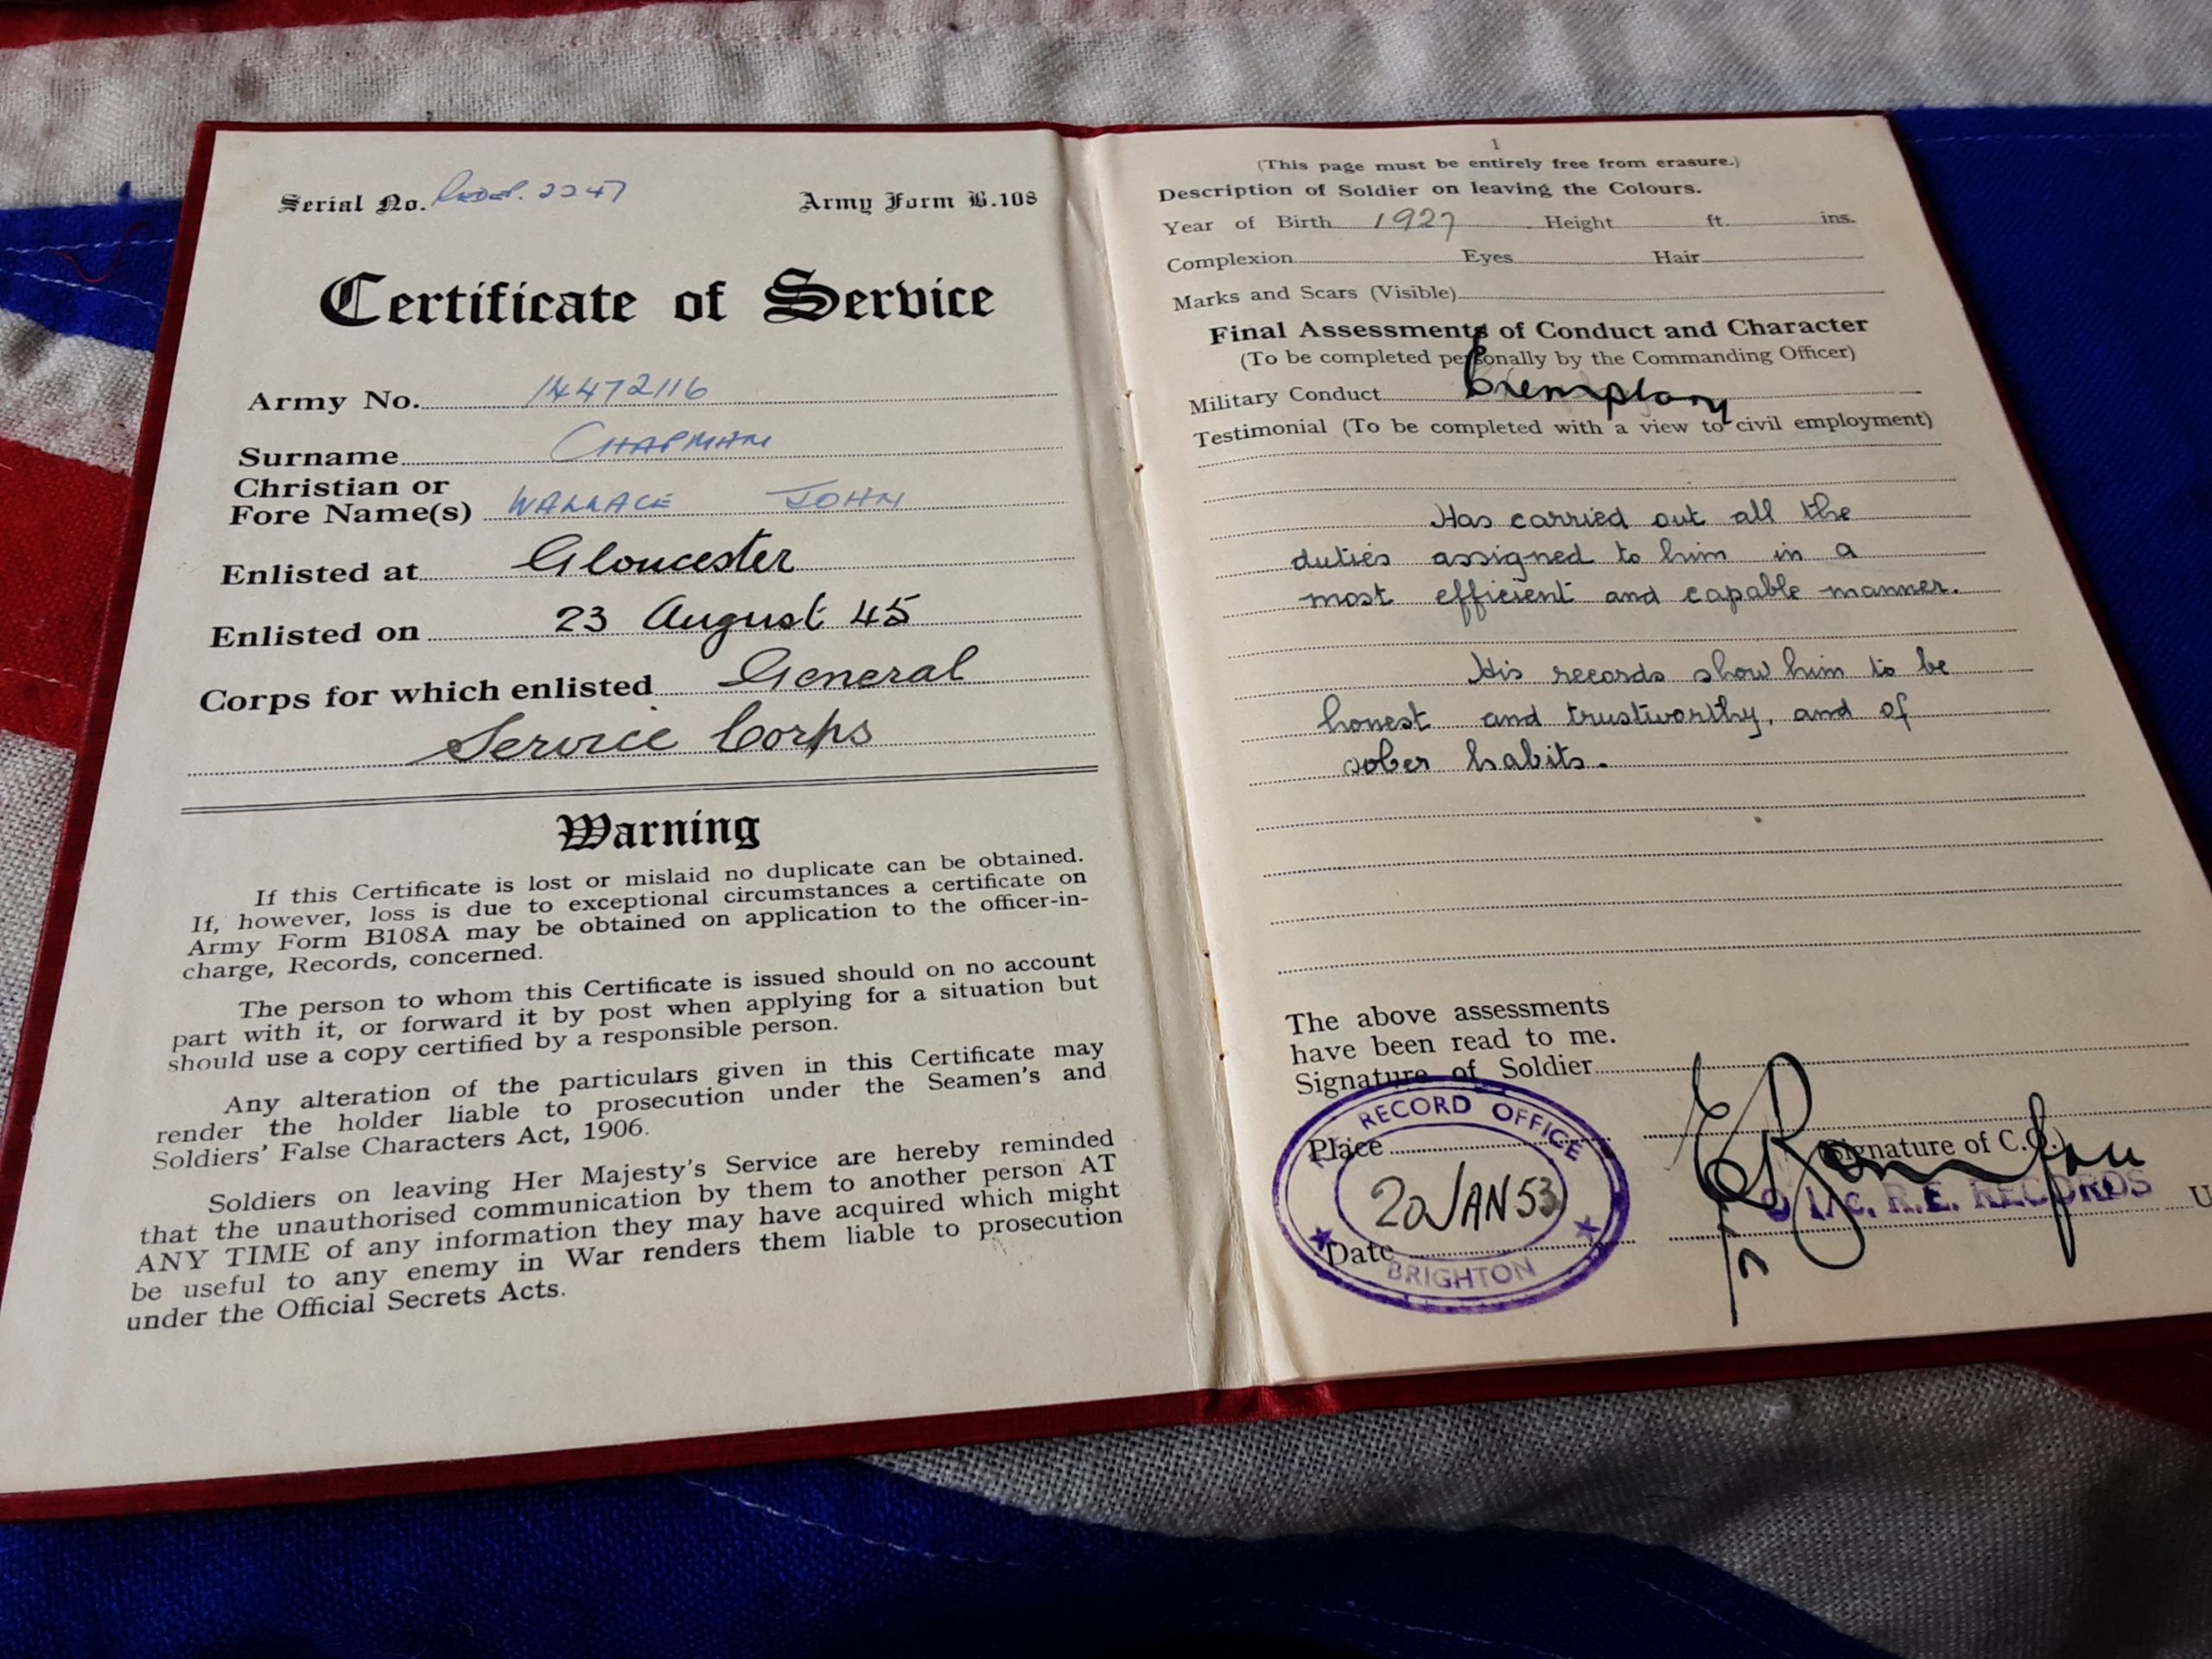 Serial No. 2247
Army Form B.108
Certificate of Service
Army No. 14472116
Surname CHAPMAN
Christian or
Fore Name(s) WALLACE JOHN
Enlisted at Gloucester
Enlisted on 23 August 45
Corps for which enlisted General
Service Corps
Warning
If this Certificate is lost or mislaid no duplicate can be obtained.
If, however, loss is due to exceptional circumstances a certificate on
Army Form B108A may be obtained on application to the officer-in-
charge, Records, concerned.
The person to whom this Certificate is issued should on no account
part with it, or forward it by post when applying for a situation but
should use a copy certified by a responsible person.
Any alteration of the particulars given in this Certificate may
render the holder liable to prosecution under the Seamen's and
Soldiers' False Characters Act, 1906.
Soldiers on leaving Her Majesty's Service are hereby reminded
that the unauthorised communication by them to another person AT
ANY TIME of any information they may have acquired which might
be useful to any enemy in War renders them liable to prosecution
under the Official Secrets Acts.
1
(This page must be entirely free from erasure.)
Description of Soldier on leaving the Colours.
Year of Birth 1927 Height ft. ins.
Complexion Eyes Hair
Marks and Scars (Visible)
Final Assessments of Conduct and Character
(To be completed personally by the Commanding Officer)
Military Conduct Exemplary
Testimonial (To be completed with a view to civil employment)
Has carried out all the
duties assigned to him in a
most efficient and capable manner.
His records show him to be
honest and trustworthy, and of
sober habits.
The above assessments
have been read to me.
Signature of Soldier
RECORD OFFICE
Place
Signature of C.O.)
20 JAN 53
O i/c. R.E. RECORDS
Date
BRIGHTON